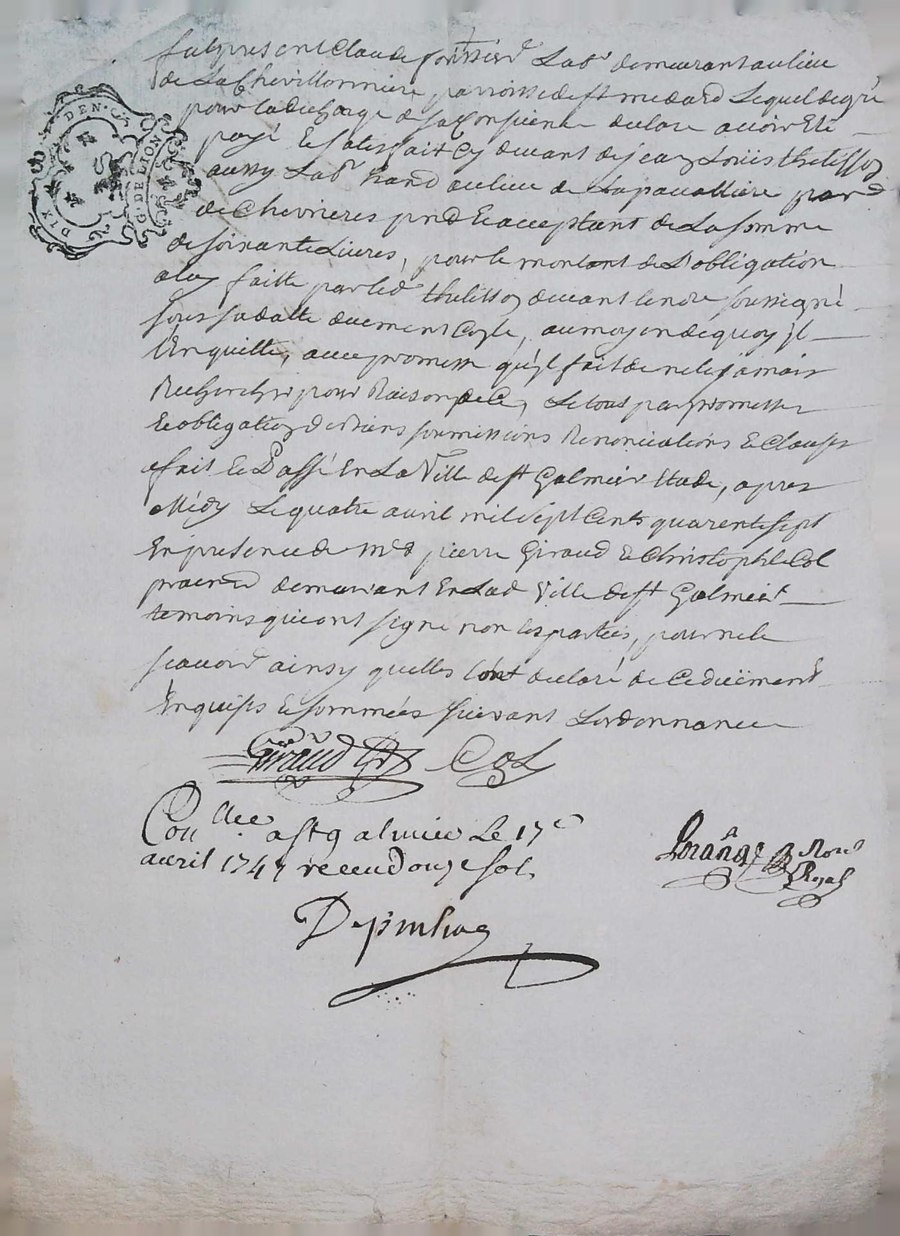 DIX DEN. G. DE LION
fut present Claude Labr demeurant au lieu
de La Chevillonniere parroisse de st medard Lequel de gré
pour la décharge de sa Consience declare avoir Eté
payé & satisfait Cy devant de jean Louis thelisson
aussy Labr au lieu de La pauattiere parr
de Chevrieres pnt & acceptant de La somme
de soixante Livres, pour le montant de L'obligation
a luy faitte par led thelisson devant le nore soussigné
sous sa datte duement Cy, au moyen de quoy jl
L'en quitte, avec promesse qu'jl fait de ne le jamais
Rechercher pour Raison de Ce, Le tout par promesses
& obligation de biens soumissions Renonciations & Clauses
fait & Passé En La Ville de st Galmier Etude, apres
Midy Le quatre avril mil sept Cents quarente sept
En presence de Mes pierre Giraud & Christophle Col
demeurant En Lad Ville de st Galmier
temoins qui ont signé non les parties, pour ne le
scavoir ainsy quelles L'ont declaré de Ce duëment
Enquises & sommées suivant Lordonnance
Giraud Col
Con llee a st galmier Le 17e
avril 1747 receu douze sols
nore
Royal